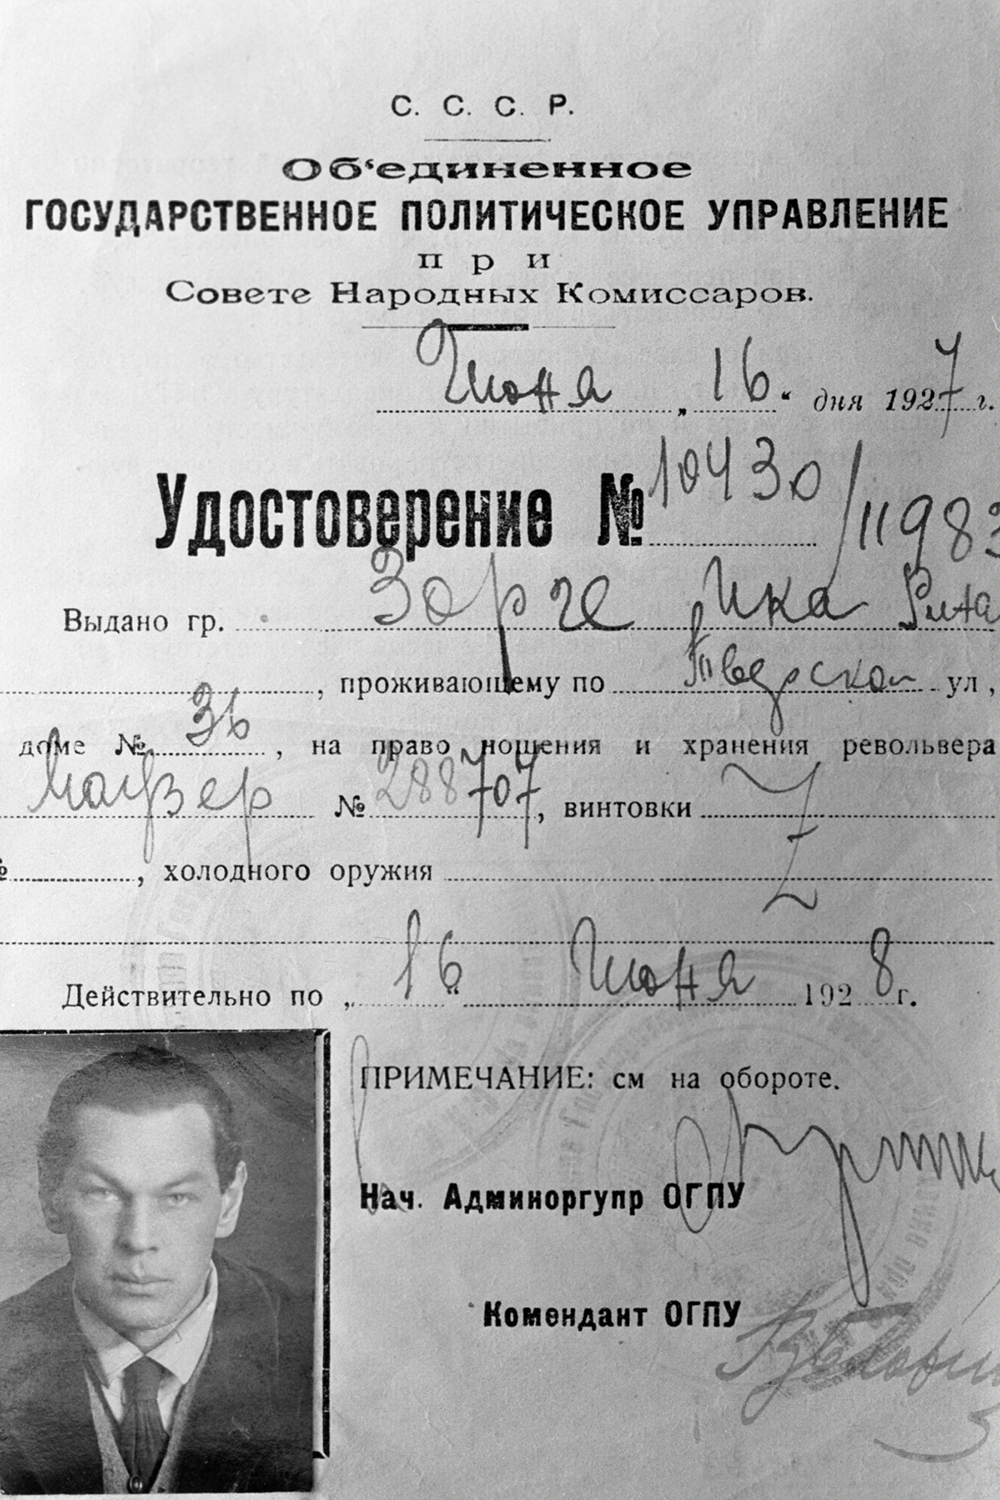 С. С. С. Р.
Об‘единенное
ГОСУДАРСТВЕННОЕ ПОЛИТИЧЕСКОЕ УПРАВЛЕНИЕ
при
Совете Народных Комиссаров.
Июня „16“ дня 1927 г.
Удостоверение № 10430/11983
Выдано гр. Зорге Ика
, проживающему по Тверской ул,
доме № 36, на право ношения и хранения револьвера
Маузер № 288707, винтовки
№, холодного оружия
Действительно по „16“ Июня 1928 г.
ПРИМЕЧАНИЕ: см на обороте.
Нач. Админоргупр ОГПУ
Комендант ОГПУ